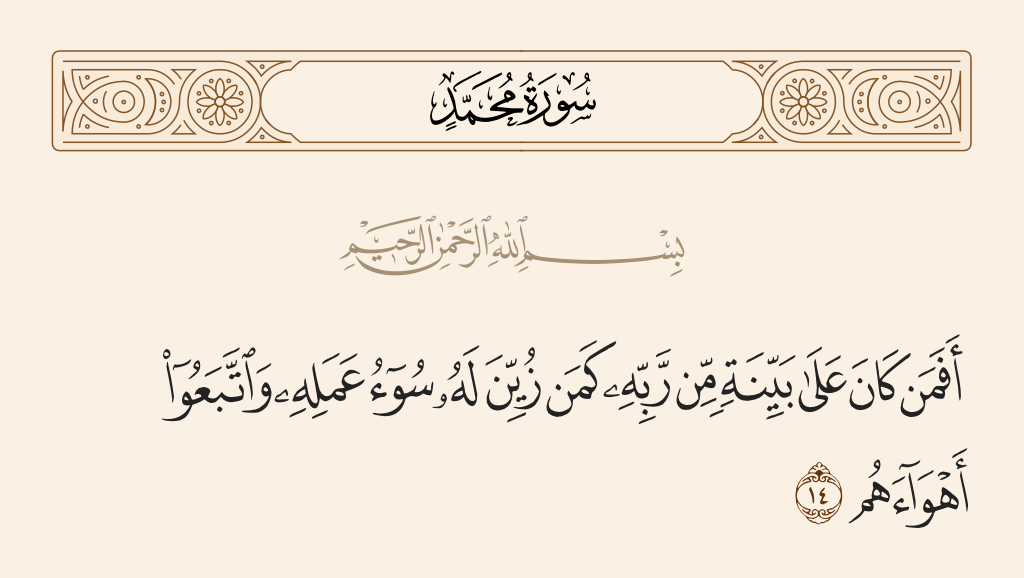 سُورَةُ مُحَمَّدٍ
بِسْمِ ٱللَّهِ ٱلرَّحْمَٰنِ ٱلرَّحِيمِ
أَفَمَن كَانَ عَلَىٰ بَيِّنَةٍ مِّن رَّبِّهِۦ كَمَن زُيِّنَ لَهُۥ سُوٓءُ عَمَلِهِۦ وَٱتَّبَعُوٓا۟
أَهْوَآءَهُم ١٤